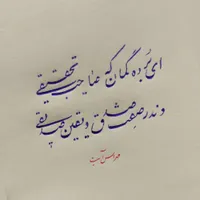 ای برده گمان که صاحب تحقیقی
و ندر صفت صدق و یقین صدیقی